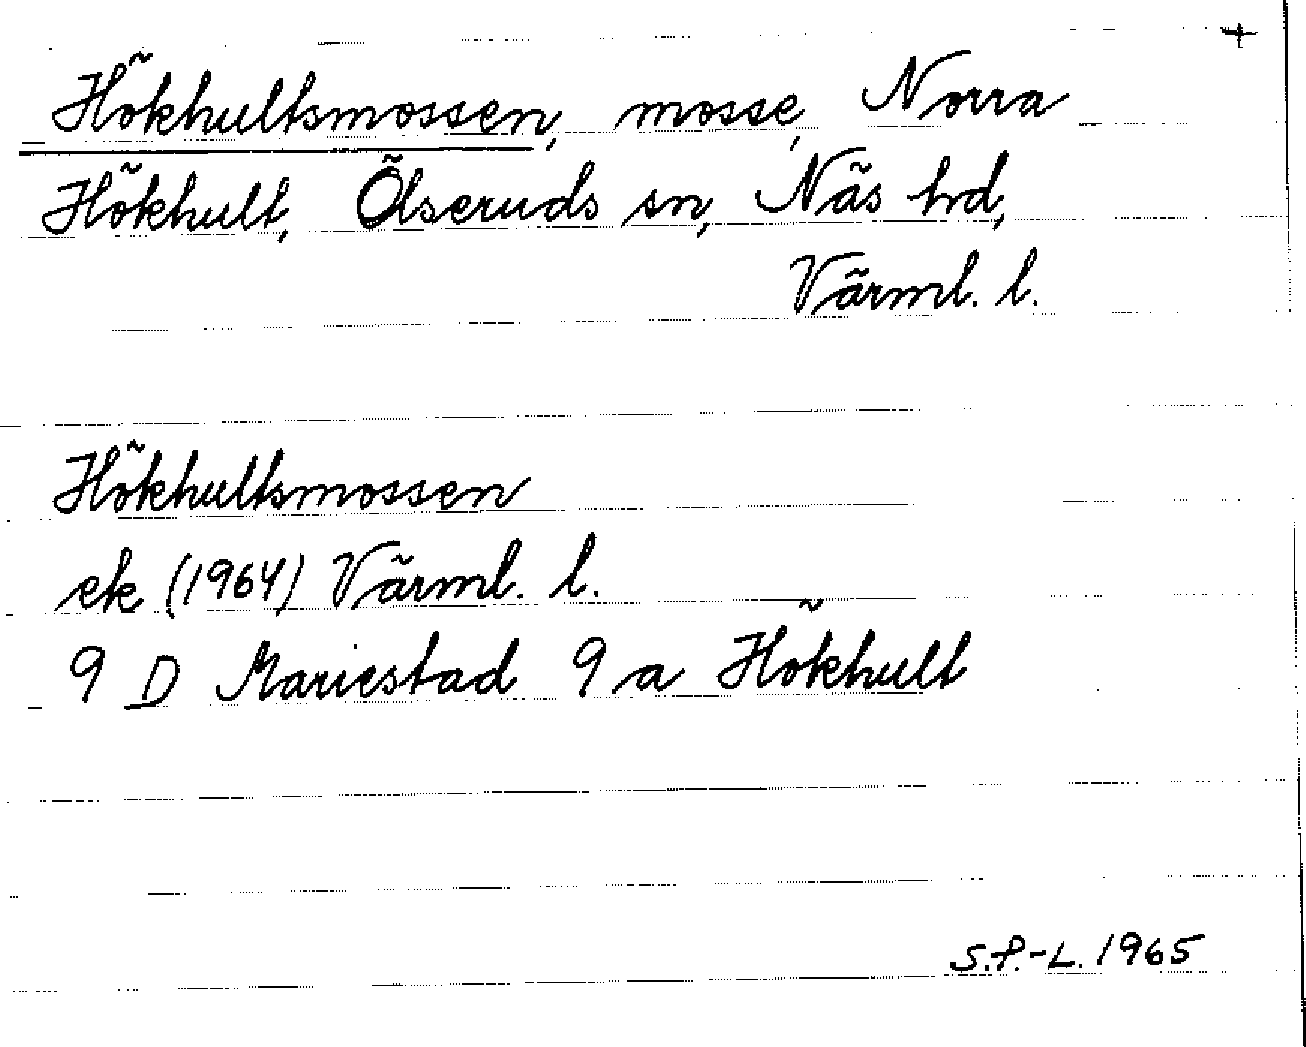 +
Hökhultsmossen, mosse, Norra
Hökhult, Ölseruds sn, Näs hd,
Värml. l.
Hökhultsmossen
ek (1964) Värml. l.
9 D Mariestad 9 a Hökhult
S.P.-L. 1965